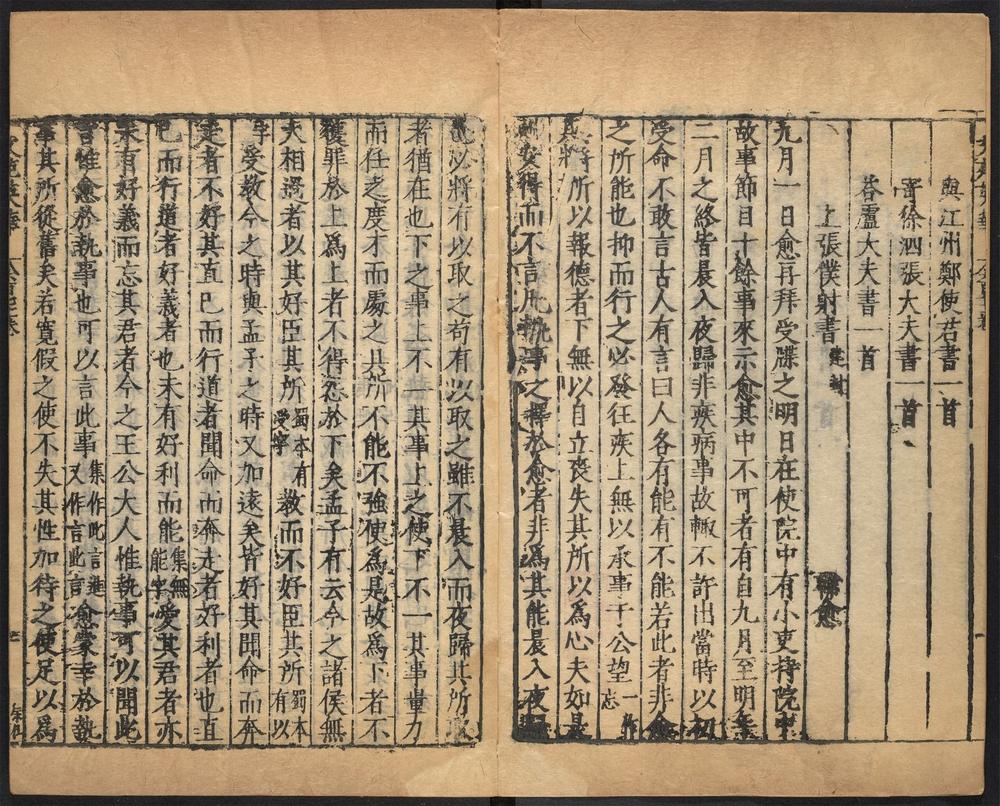 與江州鄭使君書一首
寄徐泗張大夫書一首
荅盧大夫書一首
上張僕射書 建封 韓愈
九月一日愈再拜受牒之明日在使院中有小吏持院中
故事節目十餘事來示愈其中不可者有自九月至明年
二月之終皆晨入夜歸非疾病事故輙不許出當時以初
受命不敢言古人有言曰人各有能有不能若此者非愈
之所能也抑而行之必發狂疾上無以承事于公望一作忘
其將所以報德者下無以自立喪失其所以爲心夫如是
則安得而不言凡執事之擇於愈者非爲其能晨入夜歸
也必將有以取之苟有以取之雖不晨入而夜歸其所取
者猶在也下之事上不一其事上之使下不一其事量力
而任之度才而處之其所不能不強使爲是故爲下者不
獲罪於上爲上者不得怨於下矣孟子有云今之諸侯無
大相過者以其好臣其所蜀本有受字教而不好臣其所蜀本有以
字受教今之時與孟子之時又加遠矣皆好其聞命而奔
走者不好其直巳而行道者聞命而奔走者好利者也直
巳而行道者好義者也未有好利而能集無能字愛其君者亦
未有好義而忘其君者今之王公大人惟執事可以聞此
言惟愈於執事也可以言此事集作此言進又作言此言愈蒙幸於執
事其所從舊矣若寬假之使不失其性加待之使足以爲